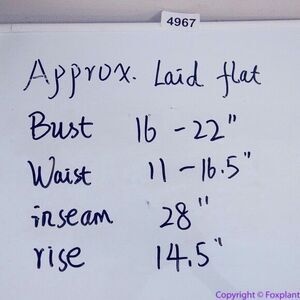 4967
Approx. Laid flat
Bust 16 - 22"
Waist 11 - 16.5"
inseam 28"
rise 14.5"
Copyright © Foxplant